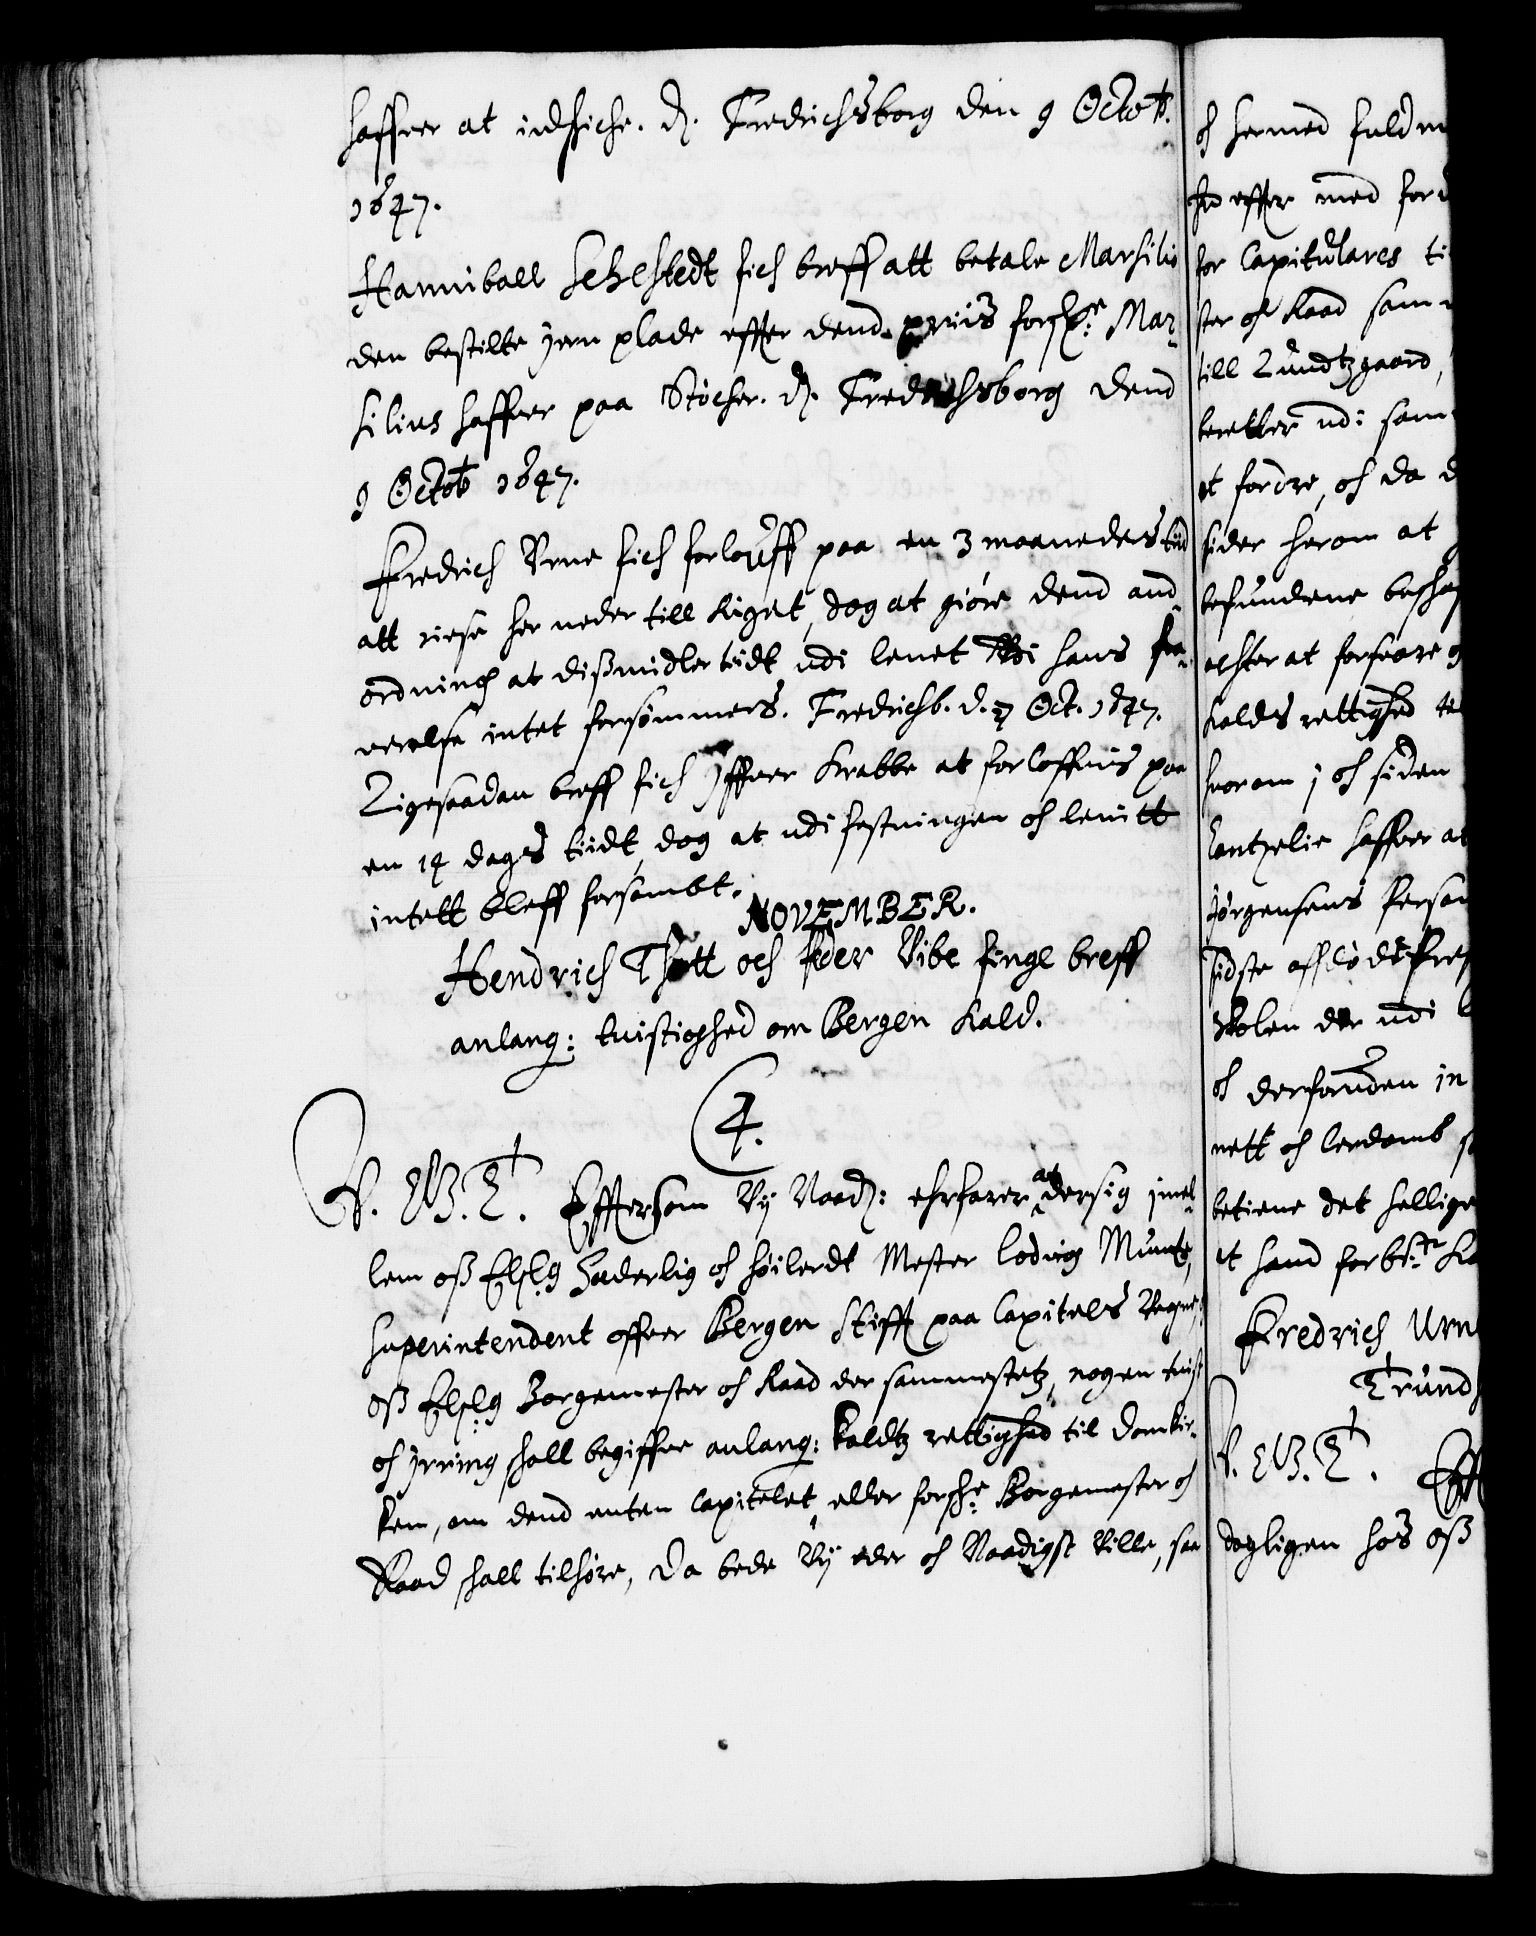 haffuer at indskiche. D. Fredrichsborg den 9 Octob.
1647.
Hanniball Sehestedt fich breff att betale Marsilio
den bestilte Jern plade effter dend priis forsk.e Mar-
silius haffuer paa Stöcher. D. Fredrichsborg dend
9 Octob 1647.
Fredrich Urne fich forlouff paa en 3 maaneders tiid
att reise her neder till Riget, dog at giöre dend and-
ordning at dißmidlertiidt udi lenet ved hans fra-
uerelse intet forsömmes. Fredrichsb. d. 7 Oct. 1647.
Ligesaadan breff fich Iffuer Krabbe at forloffuis paa
en 14 dages tiidt, dog at udi festningen och lenitt
intett bleff forsömbt.
NOVEMBER.
Hendrich Thott och Peder Vibe finge breff
anlang: tuistighed om Bergen Kald.
C4.
V. G. T. Effterson Vy Naad: erfarer at dersig imel-
lem oß Elskl. Hæderlig och höilerdt Mester Lodvig Munte,
Superintendent offuer Bergen Stifft paa Capitels Vegne,
oß Elskl. Borgemester och Raad der sammestetz, nogen tuist
och Jrring skall begiffue anlang: kaldtz rettighed til domkir-
ken, om dend enten Capitelet eller forsk.e Borgemester och
Raad skall tilhöre, Da bede Vy eder och Naadigst Ville, saa
och hermed fuldm
for Capitulares ti
ster och Raad sam
till Lundtzgaard,
beretter udi sam
et fordre, och da d
sider herom at
befundene beskaf
achter at forsvare
Kalds rettighed
huorom i och siden
Cantzelie haffuer at
Jörgensens Person
sidste affdöde
Skolen der udi
och derforuden in
nett och lerdomb
betiene det hellige
at hand forb.te Ka
Fredrich Urn
Trund
V. G. T. Eff
dagligen hos oß